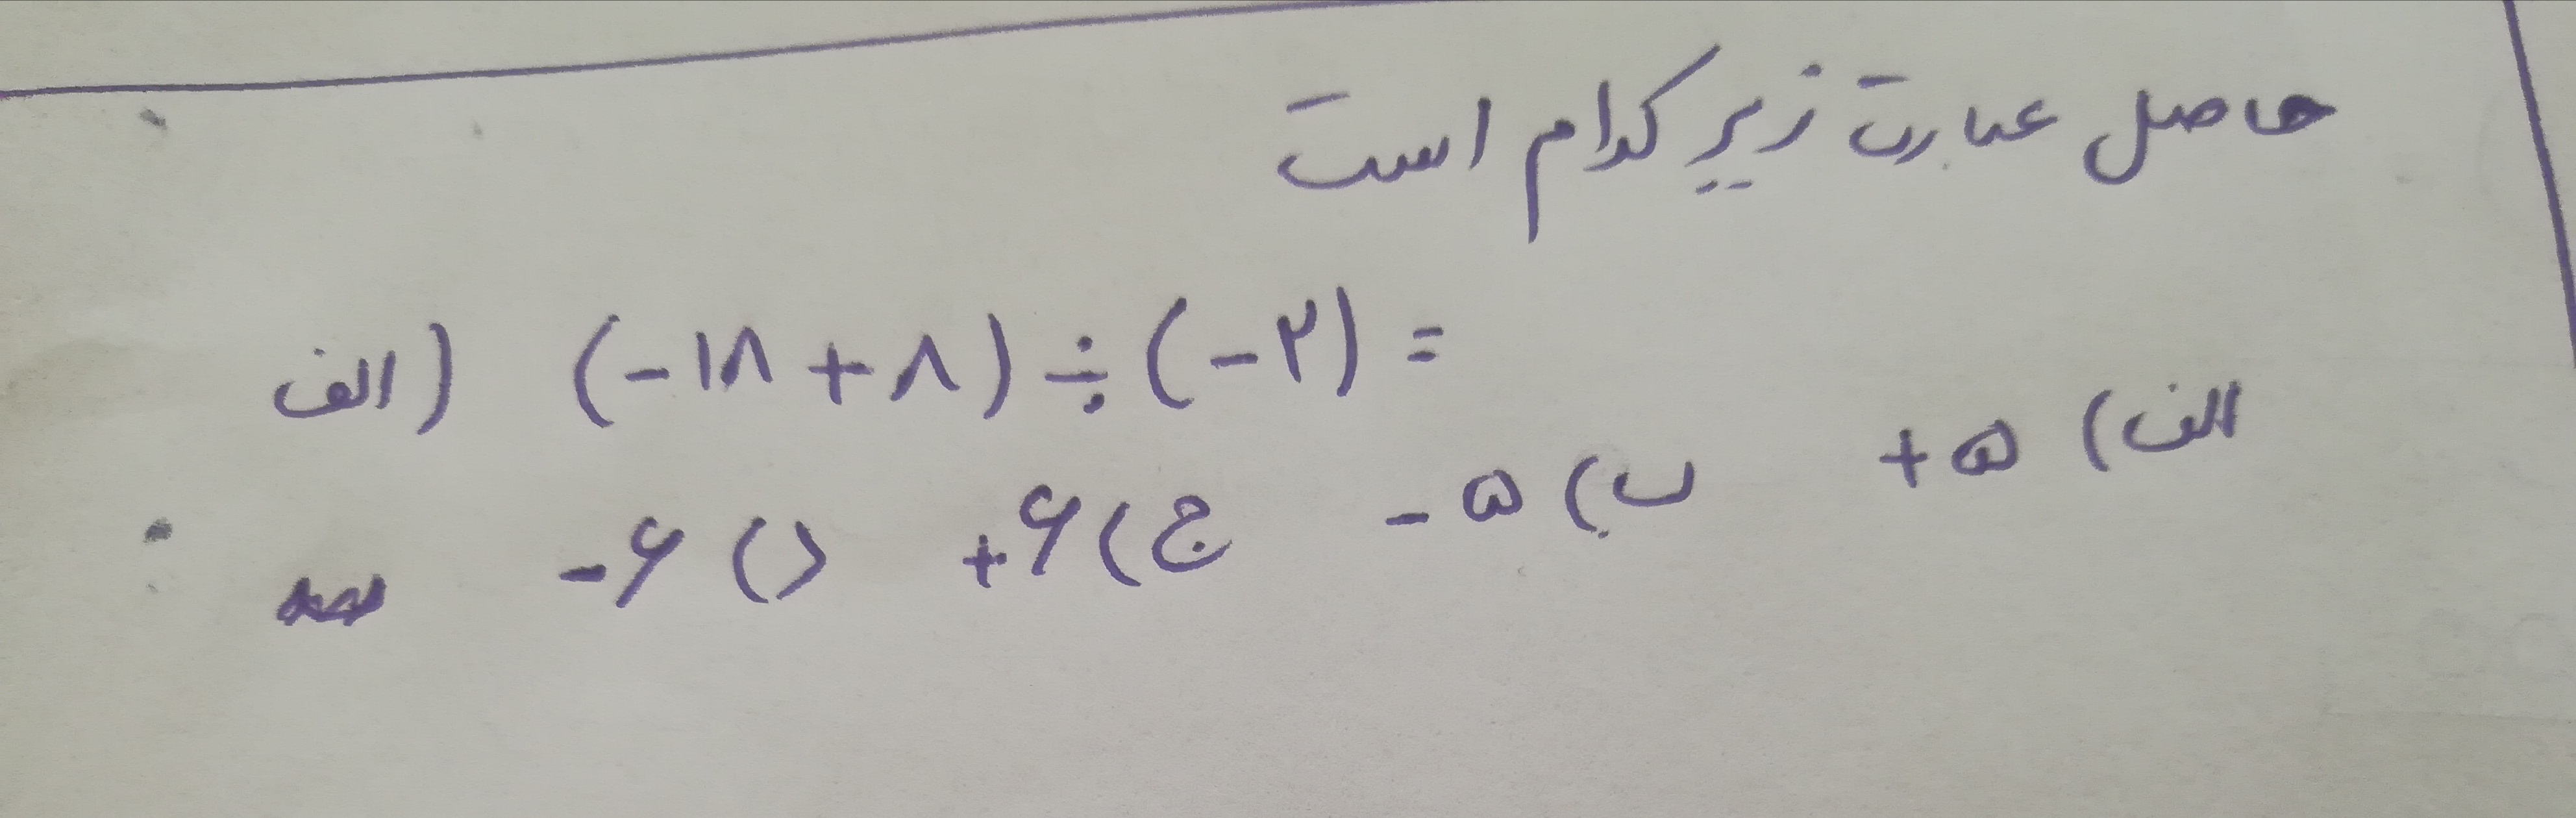 حاصل عبارت زیر کدام است
الف) (-۱۸+۸)÷(-۲)=
الف) +۵ ب) -۵ ج) +۶ د) -۶